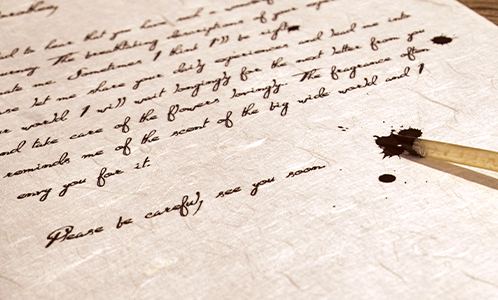 to hear that you have had a
The breathtaking descriptions of your
me. Sometimes I think I'll be right
but let me share your daily experiences and lead me into
world. I will wait longingly for the next letter from you
and take care of the flowers lovingly. The fragrance often
reminds me of the scent of the big wide world and I
envy you for it.
Please be careful, see you soon